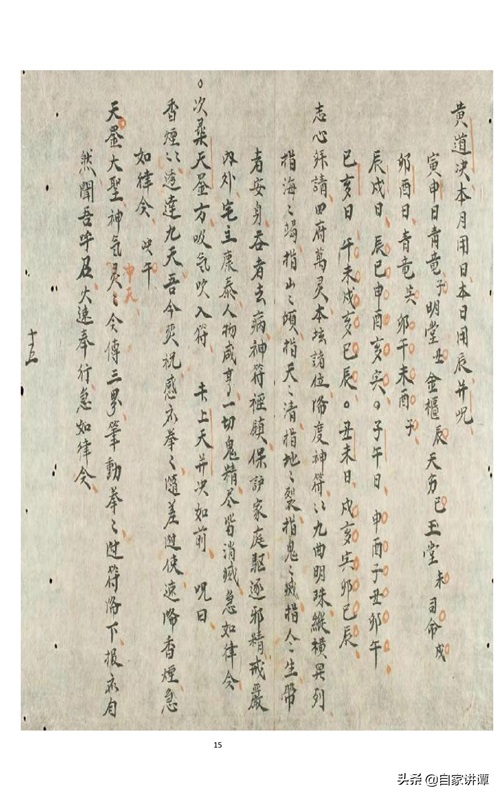 黄道决本月用日本日用辰并咒
寅申日青竜子明堂丑金櫃辰天方巳玉堂未司命戌
卯酉日青竜寅卯午未酉子
辰戌日辰巳申酉亥寅。子午日申酉子丑卯午
巳亥日午未戌亥巳辰。丑未日戌亥寅卯巳辰
志心殊請四府萬灵本坛諸位降度神符〻九曲明珠縱横异列
指海〻竭指山〻頭指天〻清指地〻裂指鬼〻滅指人〻生帶
者安身吞者去病神符極顯保护家庭驅逐邪精戒嚴
内外宅主康泰人物咸亨一切鬼精尽皆消滅急如律令
。次桒天罡方吸气吹入符去上天并决如前咒曰
香煙〻透達九天吾今奕祝感衣桒〻隨差遊使速降香煙急
如律令
天罡大聖神气灵〻今傳三界筆動桒〻进符降下报衣自
申天
然聞吾呼召火速奉行急如律令
十五
15
头条@自家讲谭